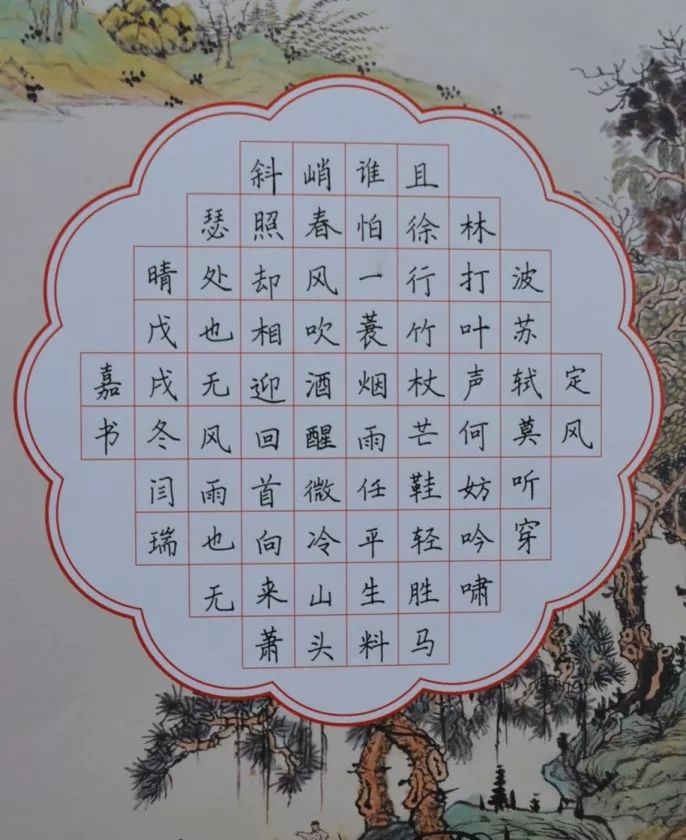 定风
波苏轼莫听穿
林打叶声何妨吟啸
且徐行竹杖芒鞋轻胜马
谁怕一蓑烟雨任平生料
峭春风吹酒醒微冷山头
斜照却相迎回首向来萧
瑟处也无风雨也无
晴戊戌冬闫瑞
嘉书